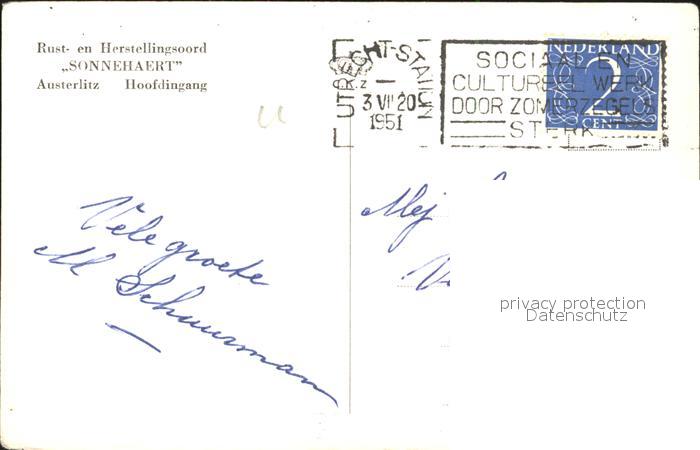 Rust- en Herstellingsoord
„SONNEHAERT”
Austerlitz Hoofdingang
UTRECHT-STATION
3 VII 20
1951
SOCIAAL EN
CULTUREEL WERK
DOOR ZOMERZEGELS
STERK
NEDERLAND
2
CENT
Vele groete
M Schuurman
Mej
privacy protection
Datenschutz